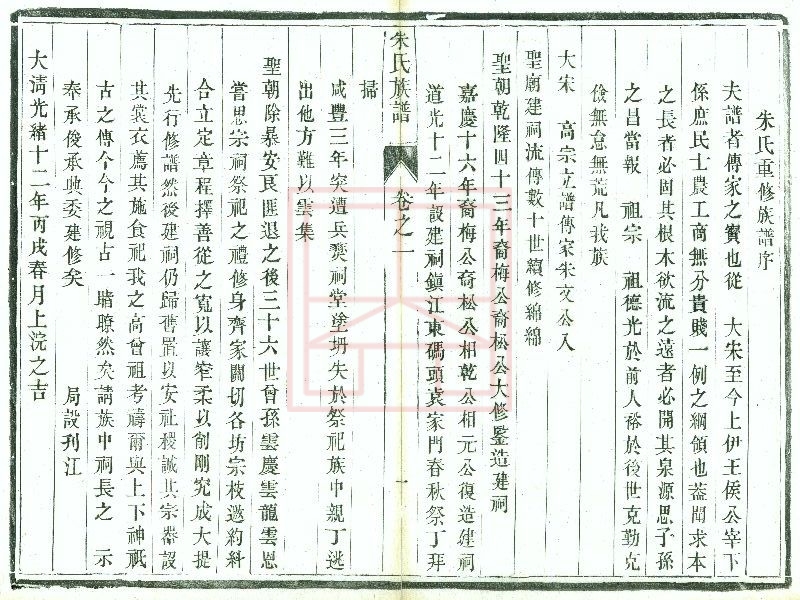 朱氏重修族譜序
夫譜者傳家之寶也從　大宋至今上伊王侯公宰下
係庶民士農工商無分貴賤一例之綱領也葢聞求本
之長者必固其根木欲流之遠者必開其泉源思子孫
之昌當報　祖宗　祖德光於前人裕於後世克勤克
儉無怠無荒凡我族
大宋　高宗立譜傳家朱文公入
聖廟建祠流傳數十世續修綿綿
聖朝乾隆四十三年裔梅公裔松公大修鑒造建祠
嘉慶十六年裔梅公裔松公相乾公相元公復造建祠
道光十二年設建祠鎮江東碼頭袁家門春秋祭丁拜
掃
朱氏族譜　卷之一　一
咸豐三年突遭兵燹祠堂塗坍失於祭祀族中親丁逃
出他方難以雲集
聖朝除暴安良匪退之後三十六世曾孫雲慶雲龍雲恩
嘗思宗祠祭祀之禮修身齊家關切各坊宗枝邀約糾
合立定章程擇善從之寬以讓窄柔以創剛究成大提
先行修譜然後建祠仍歸舊置以安社稷誠其宗器設
其裳衣薦其施食祀我之高曾祖考禱爾與上下神祇
古之傳今今之視古一階瞭然矣請族中祠長之　示
奉承俊承典委建修矣　局設刋江
大清光緒十二年丙戌春月上浣之吉